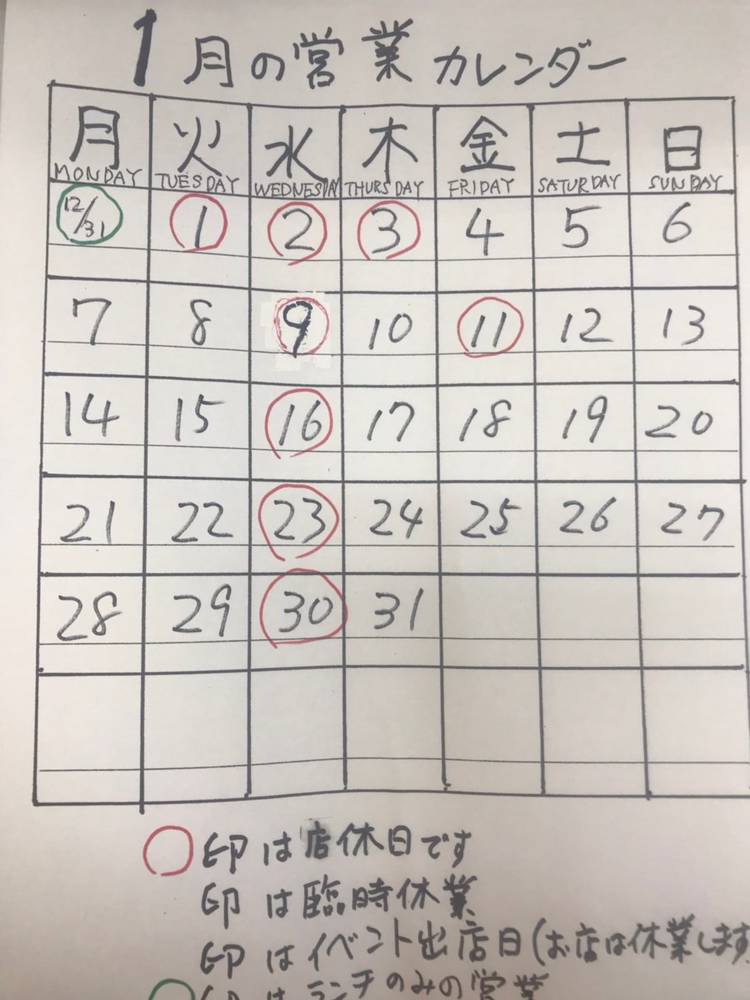 1月の営業カレンダー
月 火 水 木 金 土 日
MONDAY TUESDAY WEDNESDAY THURSDAY FRIDAY SATURDAY SUNDAY
12/31 1 2 3 4 5 6
7 8 9 10 11 12 13
14 15 16 17 18 19 20
21 22 23 24 25 26 27
28 29 30 31
印は店休日です
印は臨時休業
印はイベント出店日(お店は休業します
印はランチのみの営業